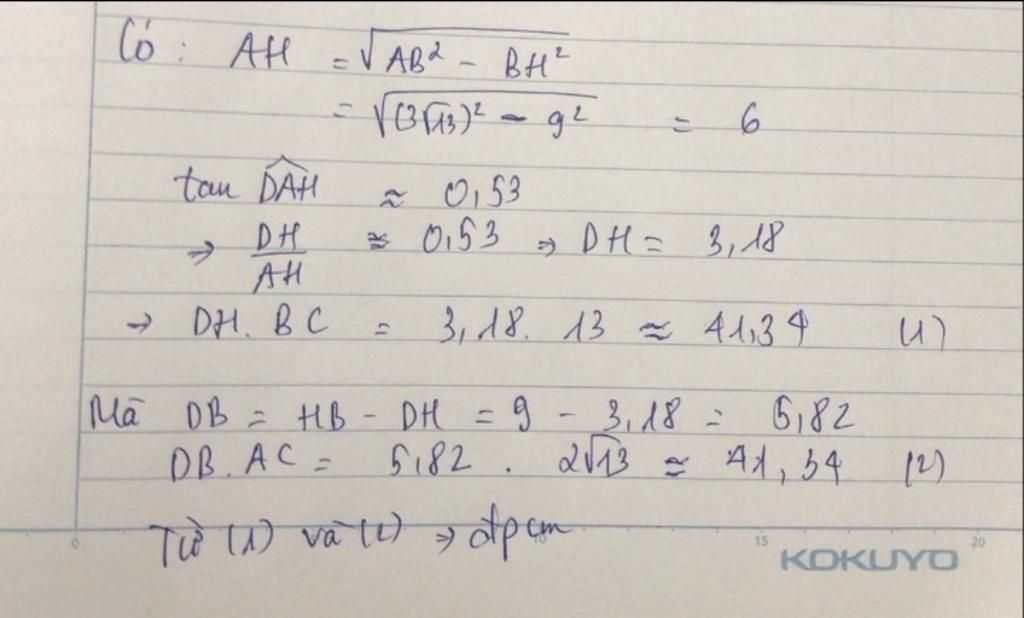 Có : AH = √(AB² - BH²)
= √((3√13)² - 9²) = 6
tan DAH ≈ 0,53
⇒ DH/AH ≈ 0,53 ⇒ DH = 3,18
→ DH. BC = 3,18. 13 ≈ 41,34 (1)
Mà DB = HB - DH = 9 - 3,18 = 5,82
DB. AC = 5,82 . 2√13 ≈ 41,34 (2)
Từ (1) và (2) ⇒ đpcm
0 10 15 20
KOKUYO